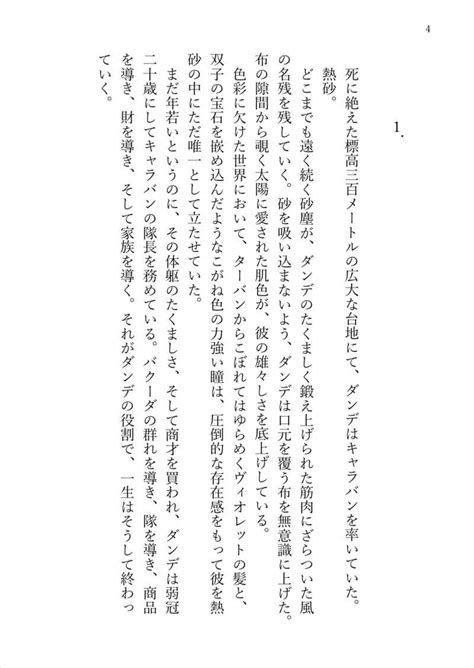 4
1.
死に絶えた標高三百メートルの広大な台地にて、ダンデはキャラバンを率いていた。
熱砂。
どこまでも遠く続く砂塵が、ダンデのたくましく鍛え上げられた筋肉にざらついた風
の名残を残していく。砂を吸い込まないよう、ダンデは口元を覆う布を無意識に上げた。
布の隙間から覗く太陽に愛された肌色が、彼の雄々しさを底上げしている。
色彩に欠けた世界において、ターバンからこぼれてはゆらめくヴィオレットの髪と、
双子の宝石を嵌め込んだようなこがね色の力強い瞳は、圧倒的な存在感をもって彼を熱
砂の中にただ唯一として立たせていた。
まだ年若いというのに、その体躯のたくましさ、そして商才を買われ、ダンデは弱冠
二十歳にしてキャラバンの隊長を務めている。バクーダの群れを導き、隊を導き、商品
を導き、財を導き、そして家族を導く。それがダンデの役割で、一生はそうして終わっ
ていく。